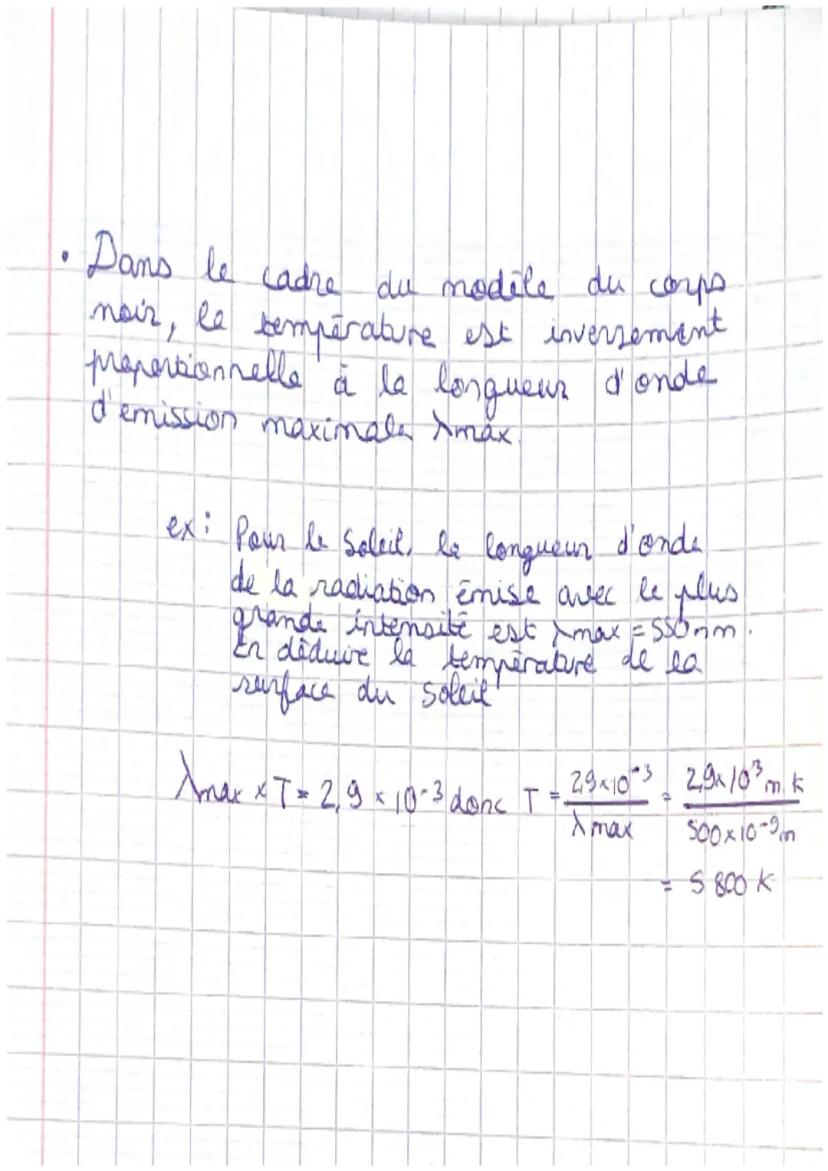 • Dans le cadre du modèle du corps
noir, la température est inversement
proportionnelle à la longueur d'onde
d'émission maximale λmax.
ex: Pour le Soleil, la longueur d'onde
de la radiation émise avec le plus
grande intensité est λmax = 550 nm.
En déduire la température de la
surface du soleil
λmax × T = 2,9 × 10⁻³ donc T = 2,9×10⁻³ / λmax = 2,9×10³ m.k / 500×10⁻⁹m
= 5 800 K